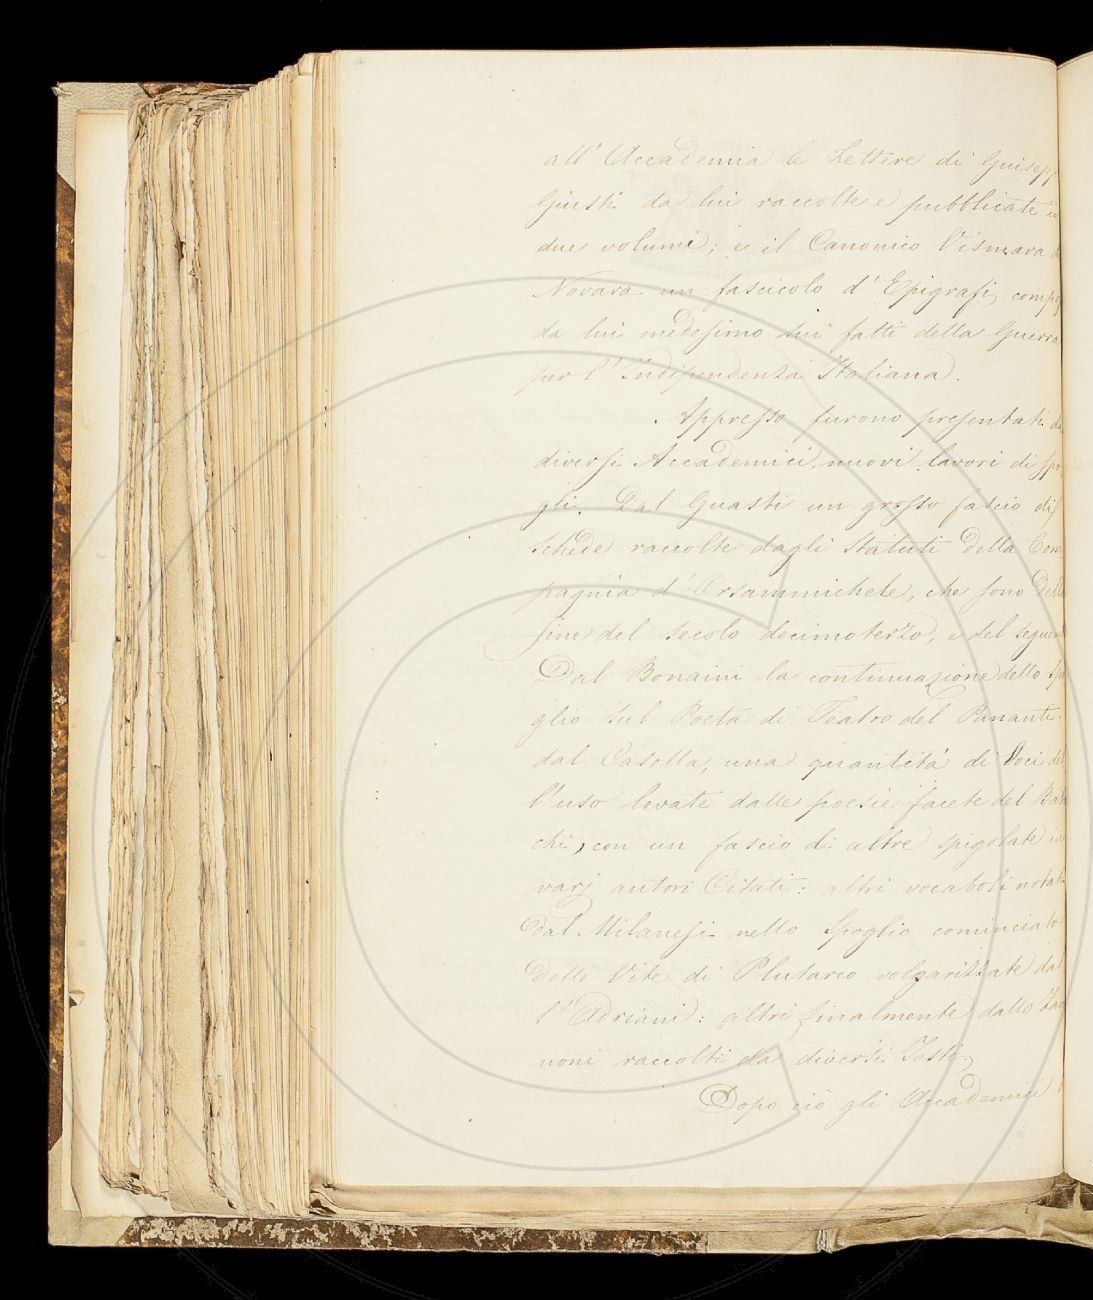 all' Accademia le Lettere di Giusepp
Giusti da lui raccolte e pubblicate in
due volumi; e il Canonico Vismara di
Novara un fascicolo d'Epigrafi comp
da lui medesimo sui fatti della Guerra
per l'Indipendenza Italiana.
Appresso furono presentati da
diversi Accademici nuovi lavori di spo
gli. Dal Guasti un grosso fascio di
schede raccolte dagli Statuti della Com
pagnia d'Orsammichele, che sono della
fine del secolo decimoterzo, e del seguent
Dal Bonaini la continuazione dello Spo
glio sul Poeta di Teatro del Pananti:
dal Casella, una quantità di Voci del
l'uso levate dalle poesie facete del Bat
chi, con un fascio di altre spigolate in
varj autori Citati: altri vocaboli notati
dal Milanesi nello Spoglio cominciato
delle Vite di Plutarco volgarizzate dal
l'Adriani: altri finalmente dallo Zan
noni raccolti da diversi Testi.
Dopo ciò gli Accademici